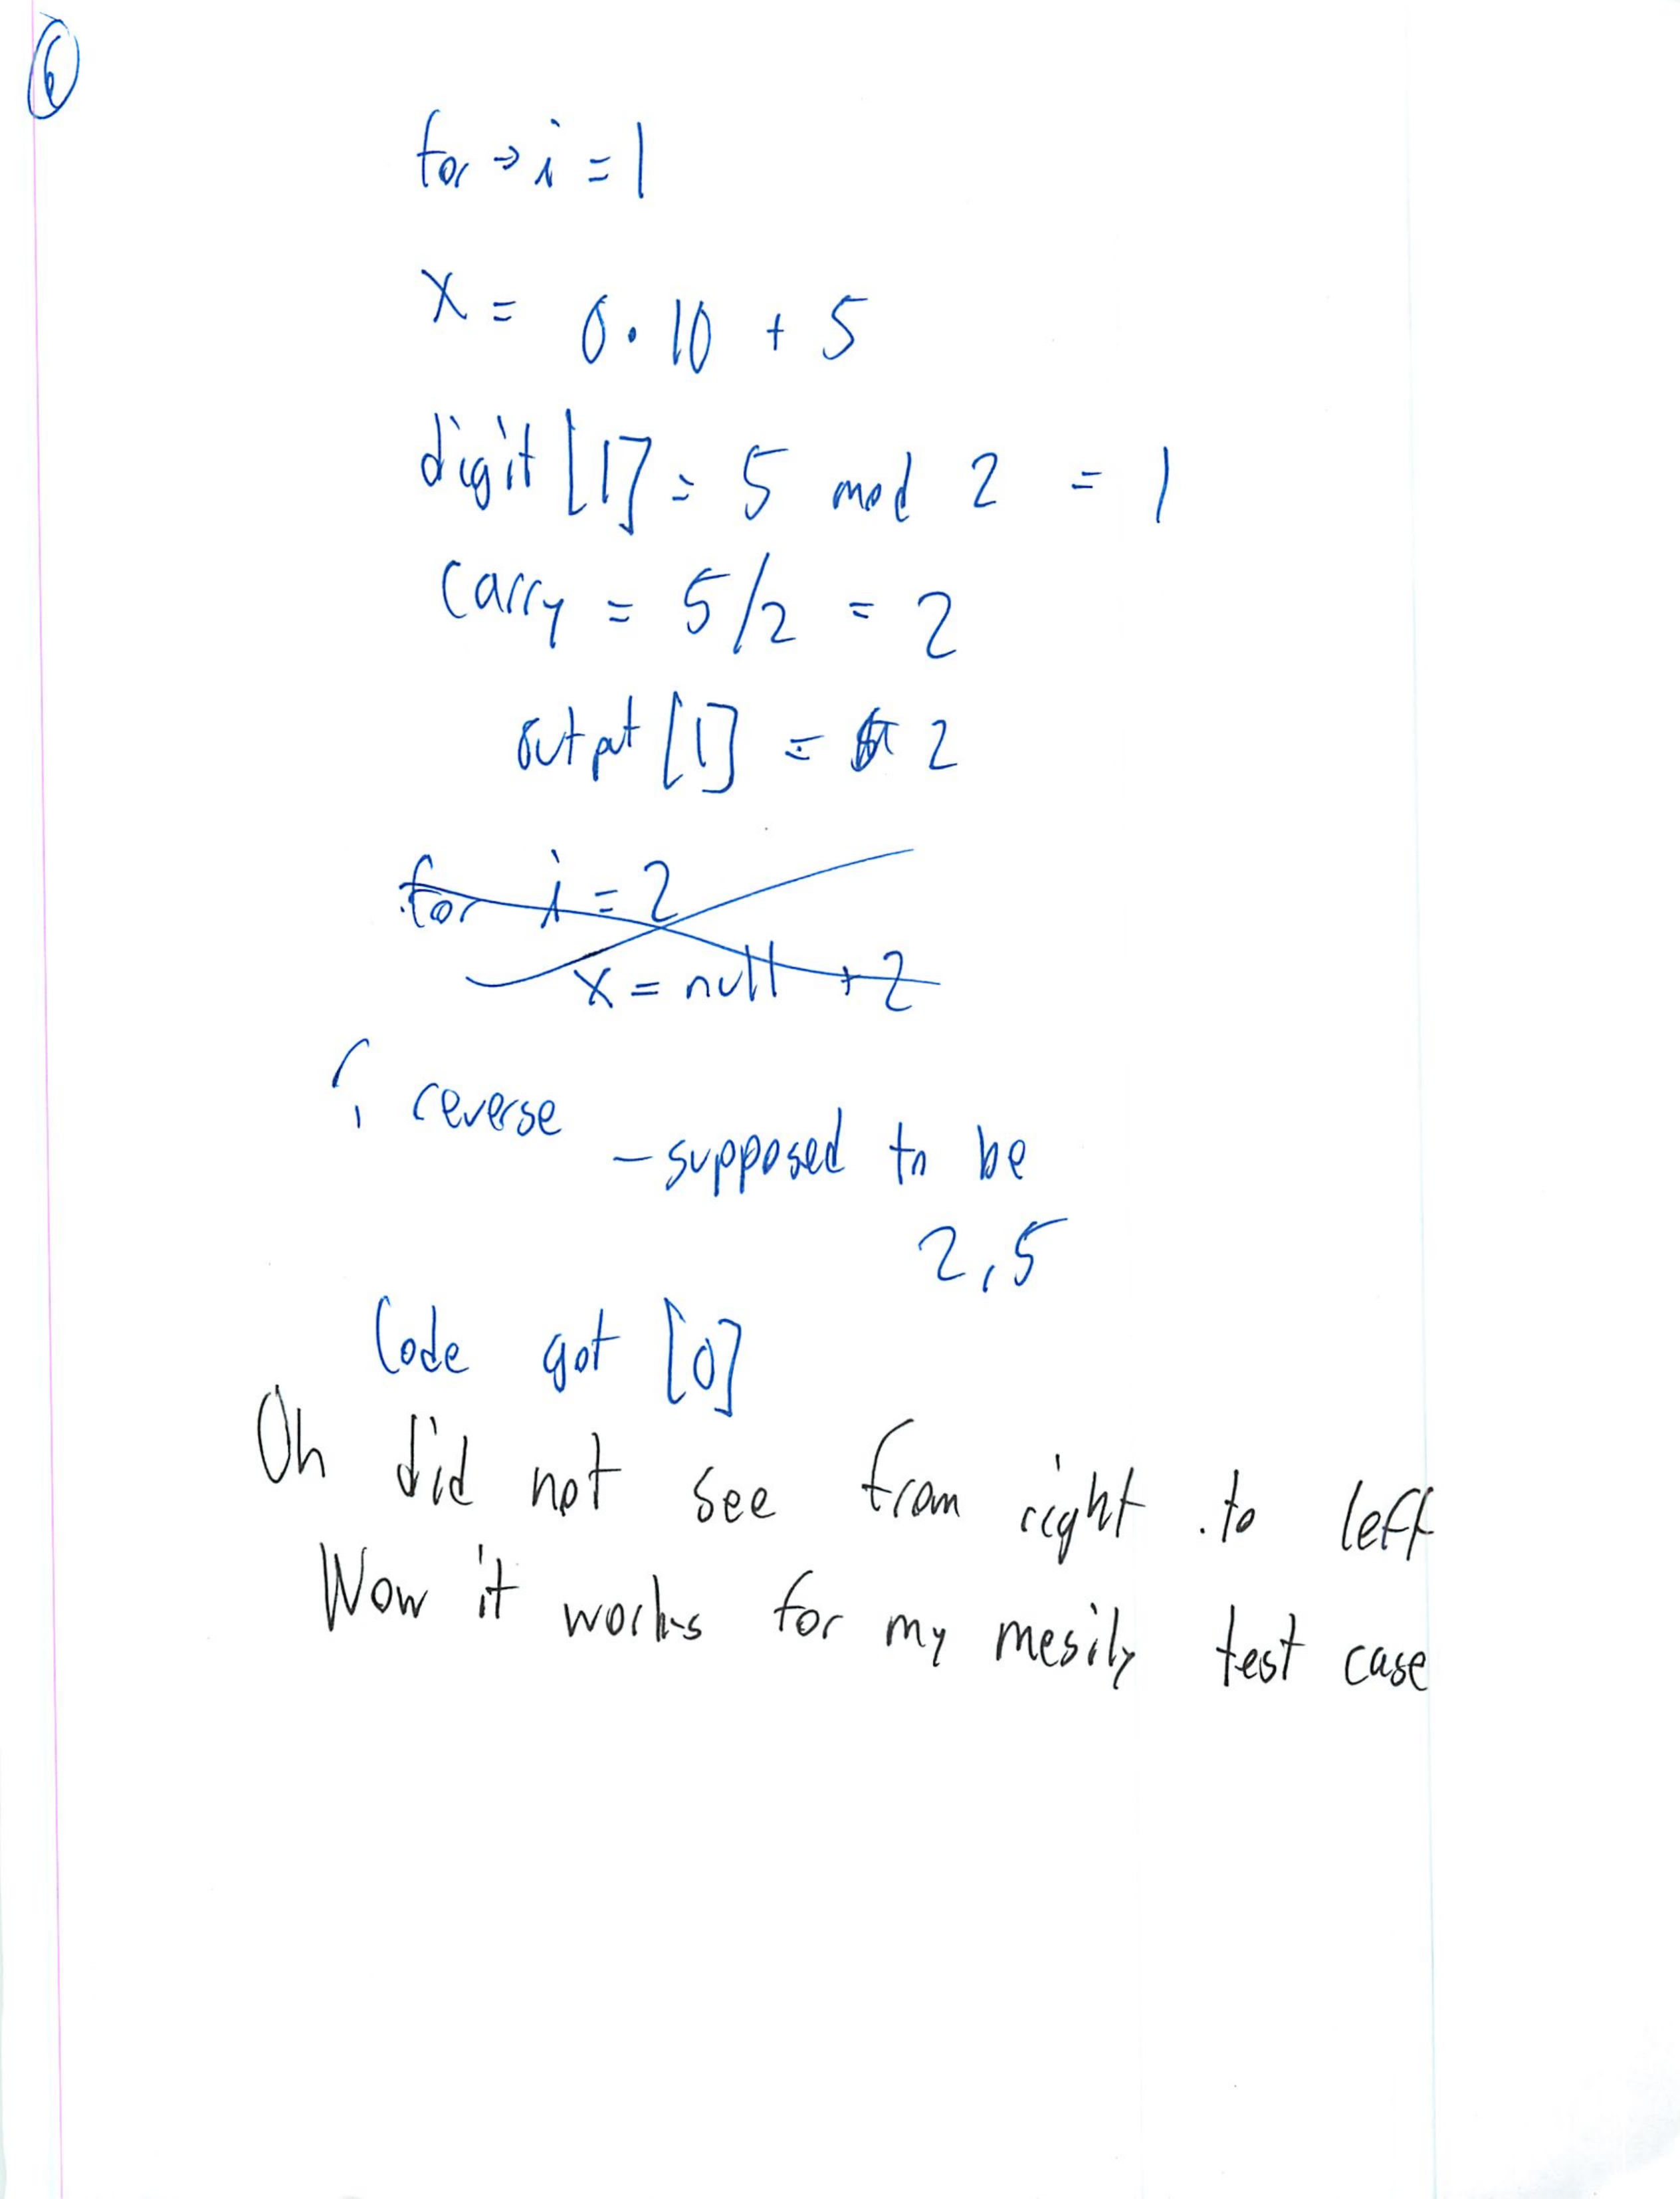 6
for → i = 1
x = 0 · 10 + 5
digit [1] = 5 mod 2 = 1
carry = 5/2 = 2
output [1] = 2
for i = 2
x = null + 2
reverse
- supposed to be
2, 5
Code got [0]
Oh did not see from right to left
Wow it works for my mesily test case